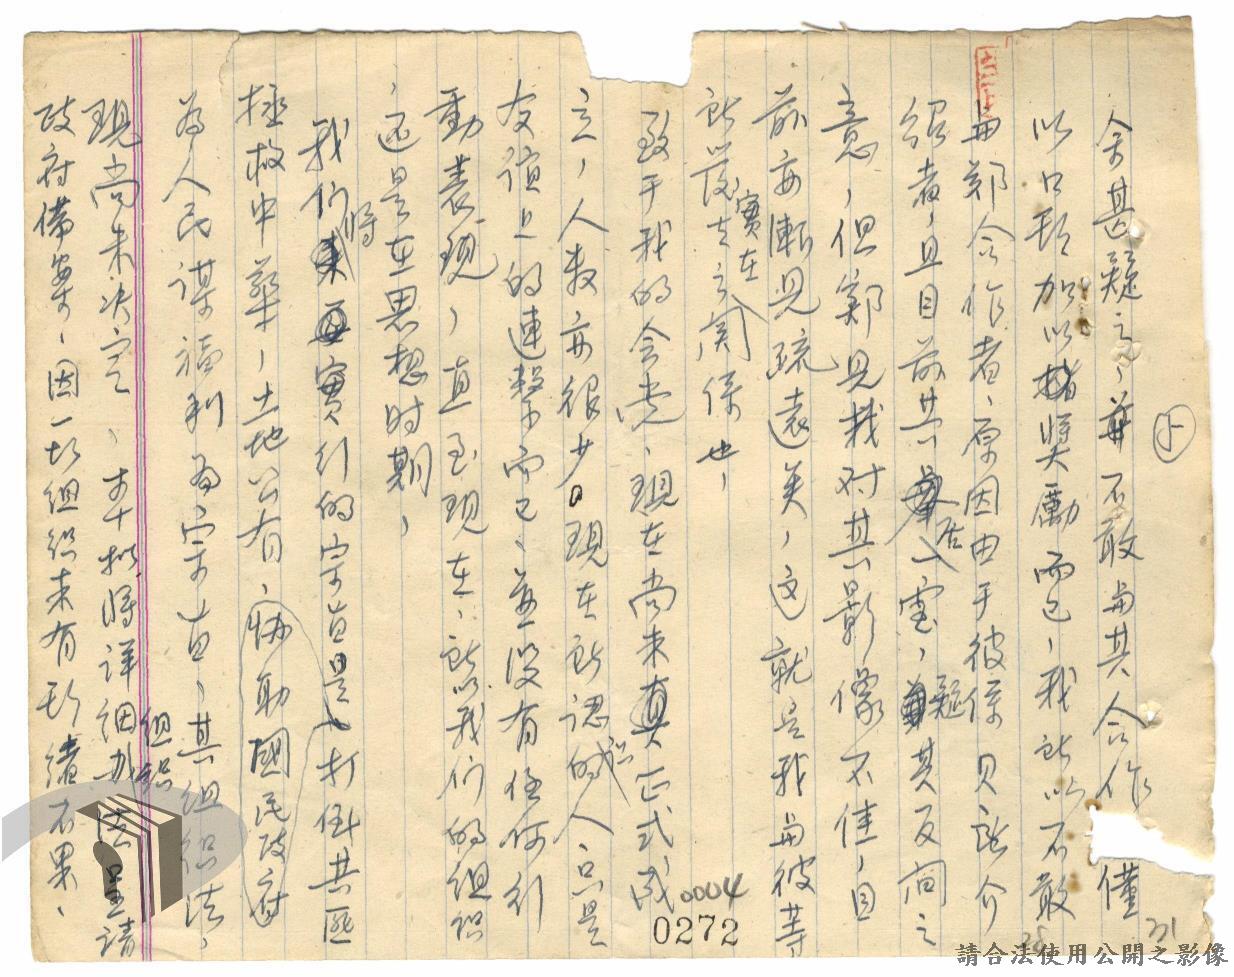 余甚疑之，並不敢與其合作　僅
以口頭加以獎勵而已，我所以不敢
與鄭合作者，原因由于彼係貝 介
紹者，且目前共居一室，疑其反間之
意，但鄭見我对其影像不佳，目
前亦漸見疏遠矣，这就是我與彼等
所以没有實在之関係也，
致于我的会党，現在尚未真正式成
立，人数亦很少。現在所認識的人只是
友誼上的連繫而已，並没有任何行
動表現，直至現在，所以我们的組織
还是在思想时期，
我们將實行的宗旨是打倒共匪
極救中華，土地公有，協助國民政府
為人民謀福利為宗旨，其組織法，
現尚未決定，本擬將詳細組織办法呈請
政府備案，因一切組織未有頭緒不果，
上
0004
0272
31
請合法使用公開之影像